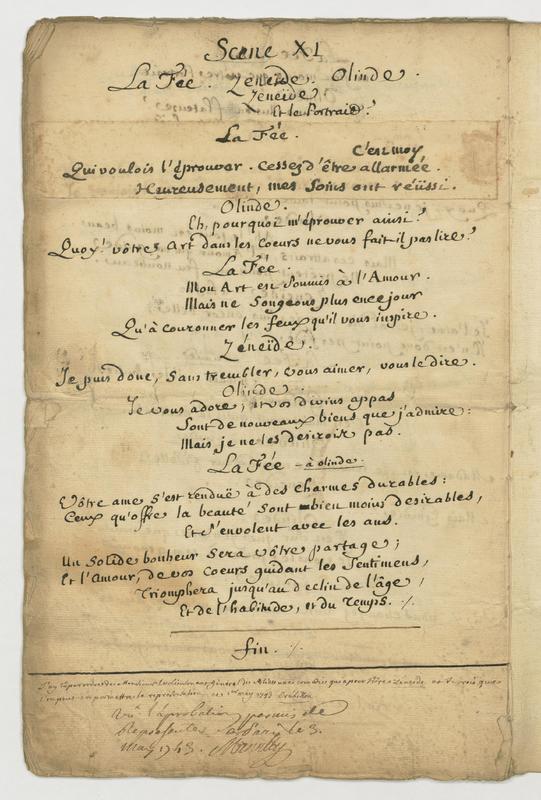 Scene XI
La Fée. Zéneïde. Olinde.
Zéneïde
Et le Portrait?
La Fée.
C'est moy
Qui voulois l'éprouver. Cessez d'être allarmée.
Heureusement, mes soins ont réüssi.
Olinde.
Eh, pourquoi m'éprouver ainsi?
Quoy! vôtre Art dans les Coeurs ne vous fait il pas lire?
La Fée.
Mon Art est soumis à l'Amour.
Mais ne songeons plus en ce jour
Qu'à couronner les feux qu'il vous inspire.
Zéneïde.
Je puis donc, sans trembler, vous aimer, vous le dire.
Olinde.
Je vous adore; et vos divins appas
Sont de nouveaux biens que j'admire:
Mais je ne les desirois pas.
La Fée - à olinde.
Vôtre ame s'est renduë à des charmes durables:
Ceux qu'offre la beauté sont bien moins desirables,
Et s'envolent avec les ans.
Un solide bonheur sera vôtre partage;
Et l'Amour, de vos coeurs guidant les sentimens,
Triomphera jusqu'au declin de l'âge,
Et de l'habitude, et du Temps. ./.
fin. ./.
J'ay lû par ordre de Monsieur le Lieutenant Général de Police une comédie qui a pour titre Zeneïde et je crois que
l'on peut en permettre la représentation ce 1er may 1743 Crébillon
Vû l'aprobation permis de
Représenter à Paris le 3.
may 1743. Marville